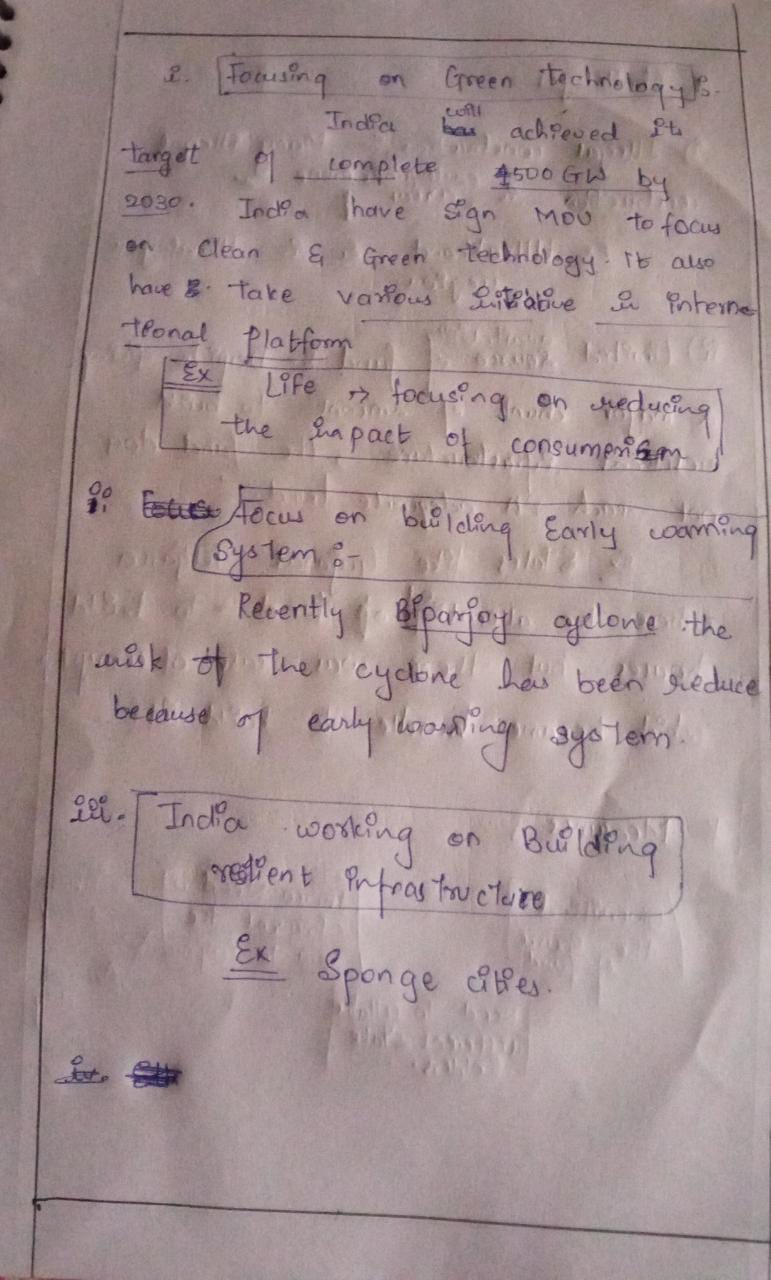 i. Focusing on Green technology :-
India will achieved it
target of complete 500 GW by
2030. India have sign MOU to focus
on Clean & Green technology. it also
have take various initiative in interna
tional platform
Ex Life → focusing on reducing
the impact of consumerism
ii Focus on building Early warning
System :-
Recently Biparjoy cyclone the
risk of the cyclone has been reduce
because of early warning system.
iii. India working on Building
resilient infrastructure
Ex Sponge cities.
iv.